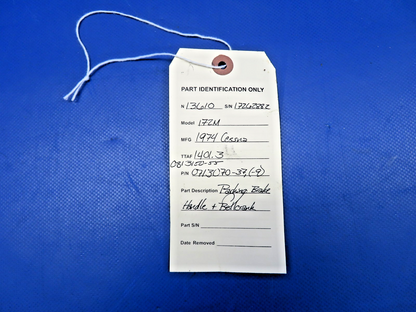 PART IDENTIFICATION ONLY
N 13610 S/N 17262882
Model 172M
MFG 1974 Cessna
TTAF 1401.3
0813150-55
P/N 0713070-37,(-9)
Part Description Parking Brake
Handle + Bellcrank
Part S/N
Date Removed